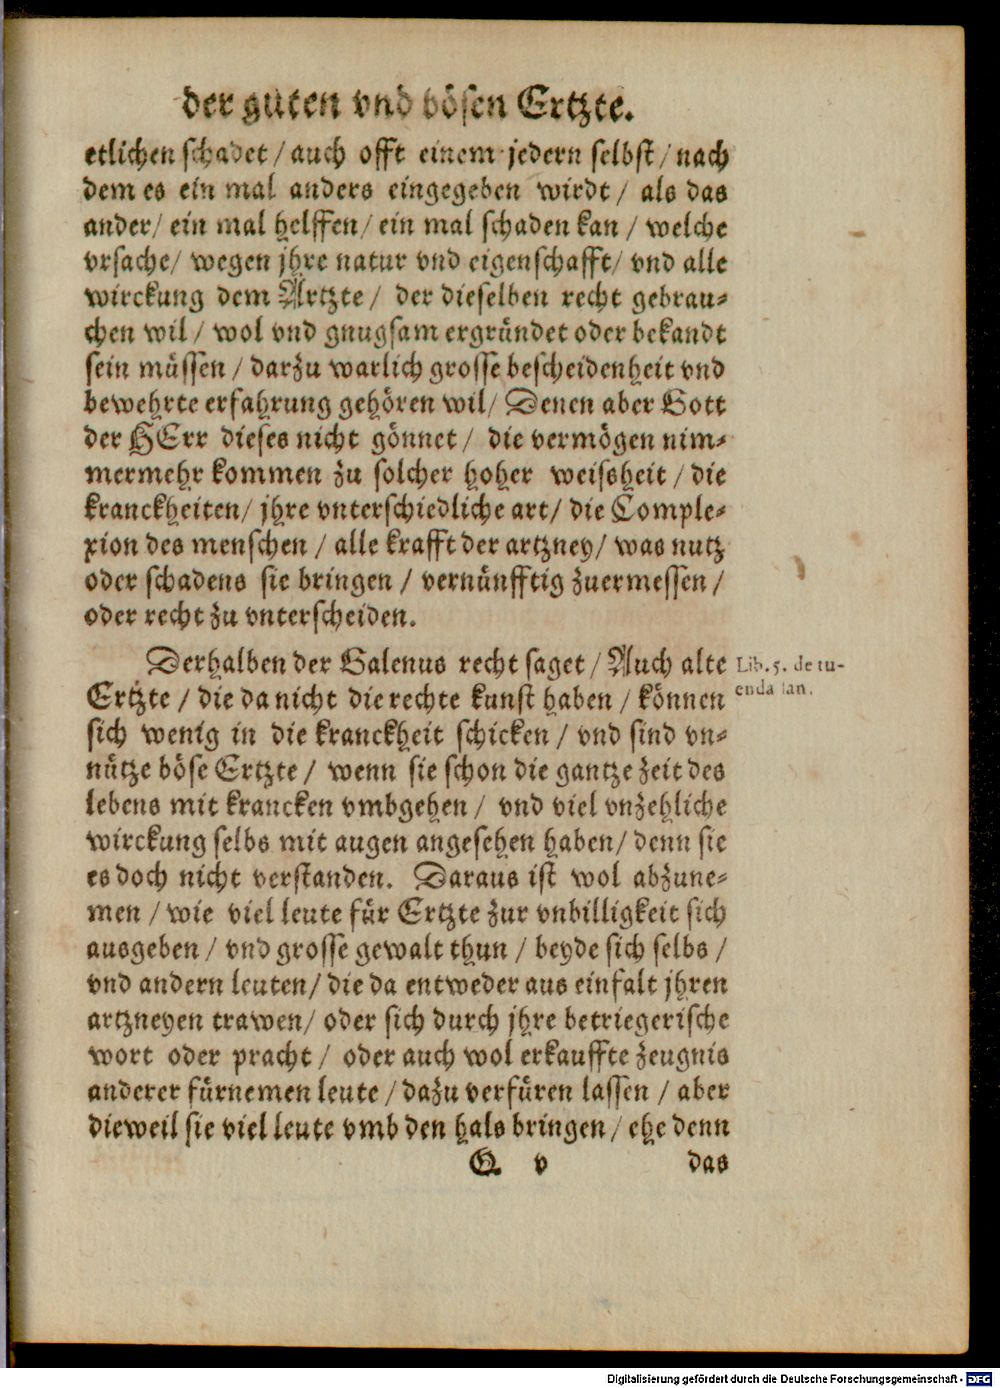 der guten vnd bösen Ertzte.
etlichen schadet / auch offt einem jedern selbst / nach
dem es ein mal anders eingegeben wirdt / als das
ander / ein mal helffen / ein mal schaden kan / welche
vrsache / wegen jhre natur vnd eigenschafft / vnd alle
wirckung dem Artzte / der dieselben recht gebrau-
chen wil / wol vnd gnugsam ergründet oder bekandt
sein müssen / darzu warlich grosse bescheidenheit vnd
bewehrte erfahrung gehören wil / Denen aber Gott
der HErr dieses nicht gönnet / die vermögen nim-
mermehr kommen zu solcher hoher weisheit / die
kranckheiten / jhre vnterschiedliche art / die Comple-
xion des menschen / alle krafft der artzney / was nutz
oder schadens sie bringen / vernünfftig zuermessen /
oder recht zu vnterscheiden.
Derhalben der Galenus recht saget / Auch alte
Lib. 5. de tu-
enda san.
Ertzte / die da nicht die rechte kunst haben / können
sich wenig in die kranckheit schicken / vnd sind vn-
nütze böse Ertzte / wenn sie schon die gantze zeit des
lebens mit krancken vmbgehen / vnd viel vnzehliche
wirckung selbs mit augen angesehen haben / denn sie
es doch nicht verstanden. Daraus ist wol abzune-
men / wie viel leute für Ertzte zur vnbilligkeit sich
ausgeben / vnd grosse gewalt thun / beyde sich selbs /
vnd andern leuten / die da entweder aus einfalt jhren
artzneyen trawen / oder sich durch jhre betriegerische
wort oder pracht / oder auch wol erkauffte zeugnis
anderer fürnemen leute / dazu verfüren lassen / aber
dieweil sie viel leute vmb den hals bringen / ehe denn
Q v das
Digitalisierung gefördert durch die Deutsche Forschungsgemeinschaft - DFG